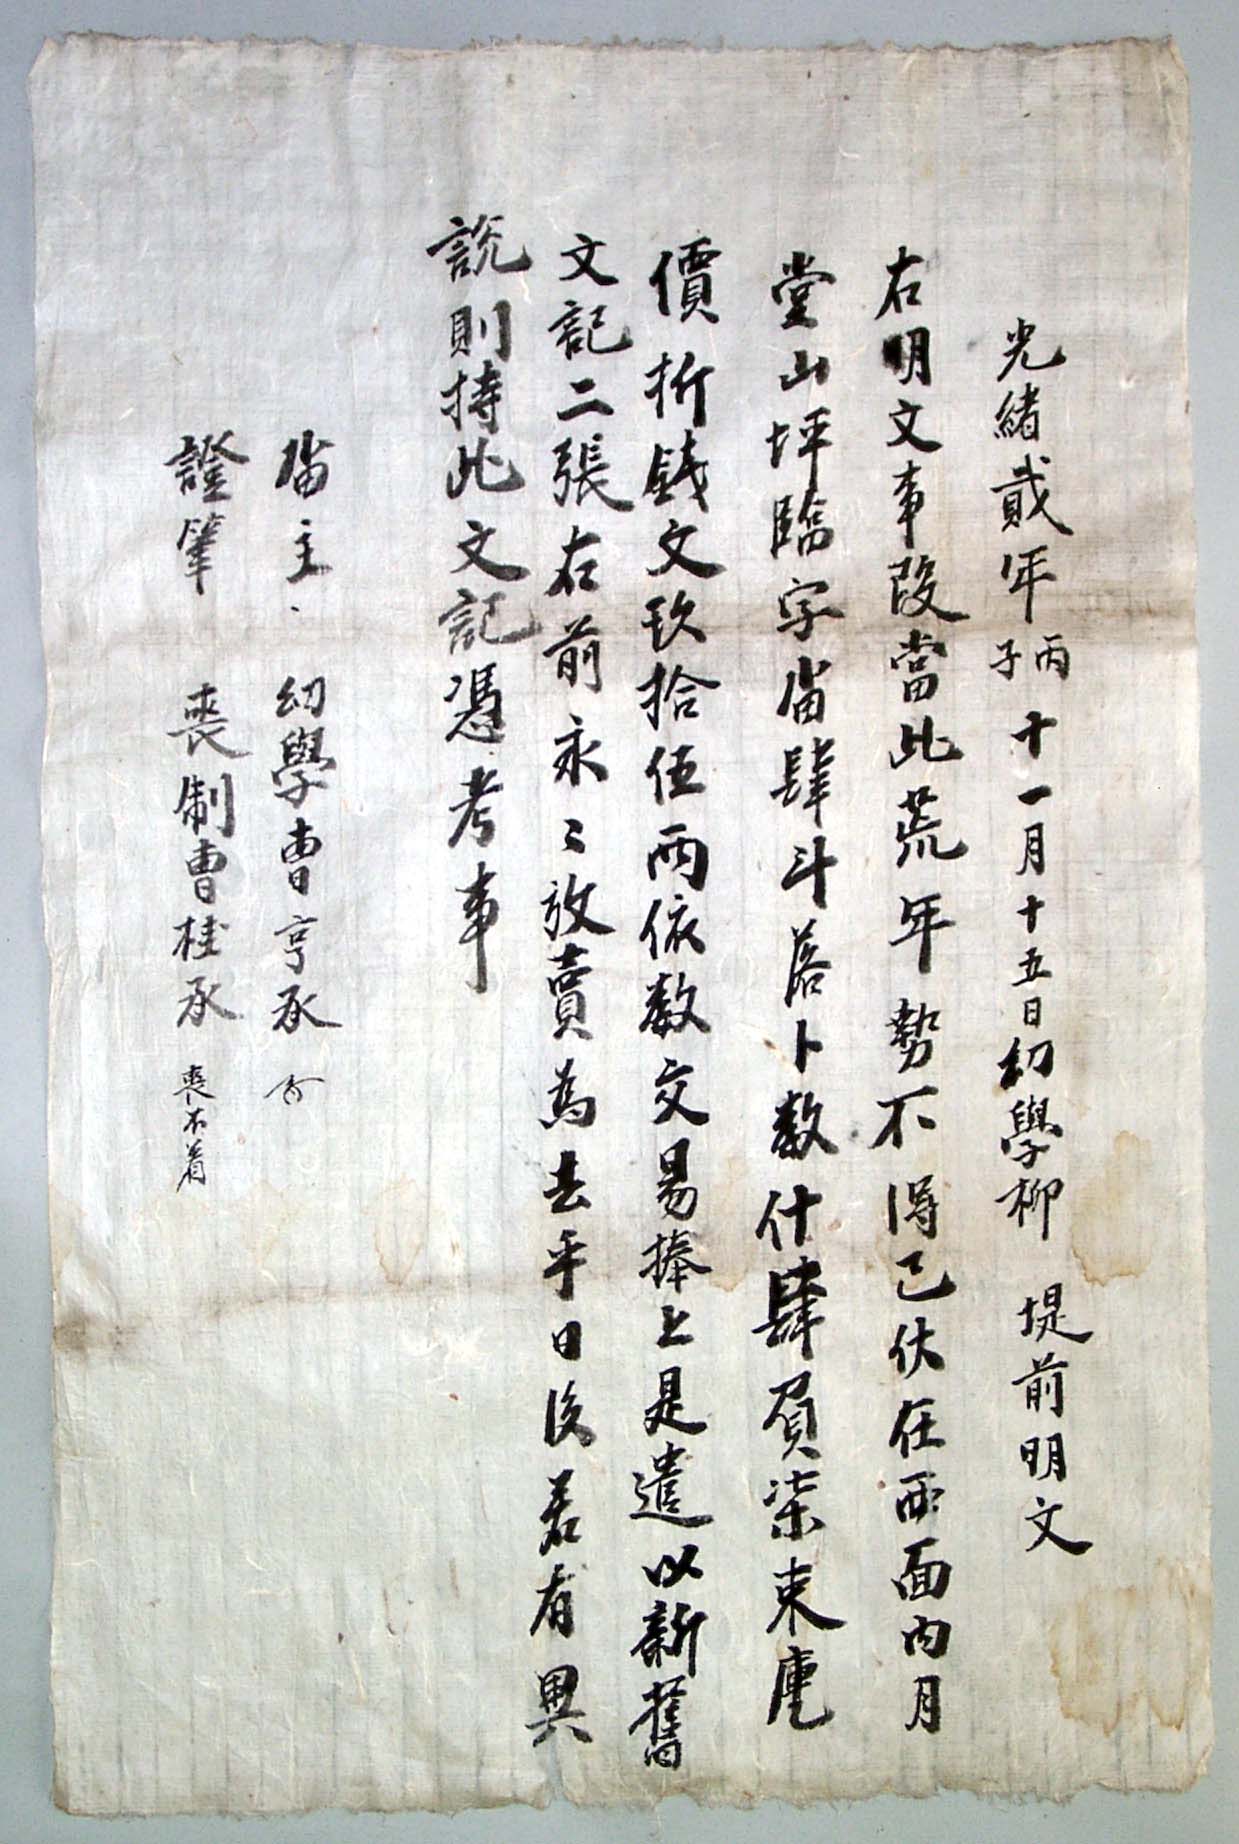 光緖貳年丙子十一月十五日幼學柳 堤前明文
右明文事段當此荒年勢不得已伏在西面內月
堂山坪臨字畓肆斗落卜數什肆負柒束庫
價折錢文玖拾伍兩依數交易捧上是遣以新舊
文記二張右前永〻放賣爲去乎日後若有異
說則持此文記憑考事
畓主 幼學曺亨承
證筆 喪制曺桂承 喪不着